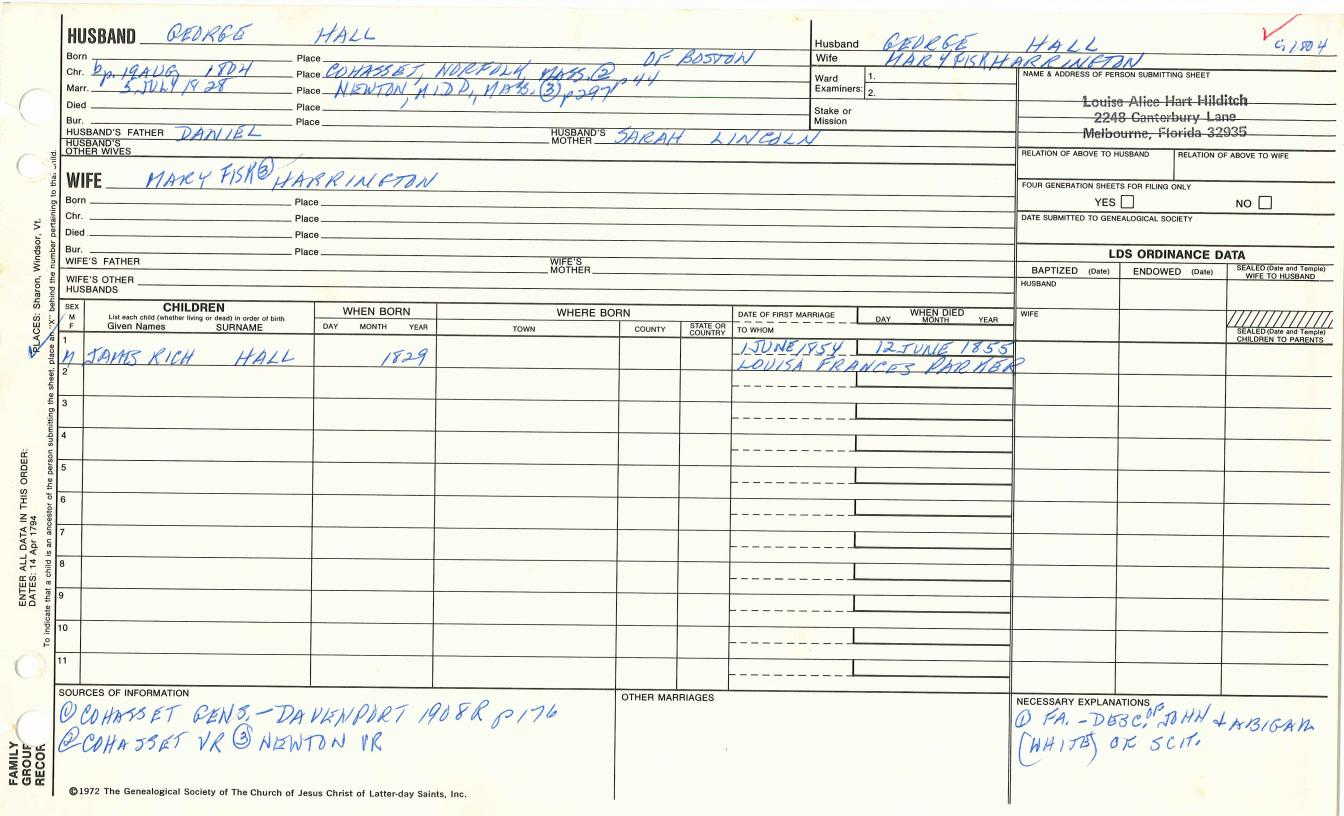 HUSBAND GEORGE HALL
Born Place OF BOSTON
Chr. bp. 19 AUG 1804 Place COHASSET, NORFOLK, MASS. ② p44
Marr. 5 JULY 1828 Place NEWTON, MIDD., MASS. ③ p297
Died Place
Bur. Place
HUSBAND'S FATHER DANIEL HUSBAND'S MOTHER SARAH LINCOLN
HUSBAND'S OTHER WIVES
WIFE MARY FISK ③ HARRINGTON
Born Place
Chr. Place
Died Place
Bur. Place
WIFE'S FATHER WIFE'S MOTHER
WIFE'S OTHER HUSBANDS
Husband GEORGE HALL G1804
Wife MARY FISK HARRINGTON
Ward Examiners: 1. 2.
Stake or Mission
NAME & ADDRESS OF PERSON SUBMITTING SHEET
Louise Alice Hart Hilditch
2248 Canterbury Lane
Melbourne, Florida 32935
RELATION OF ABOVE TO HUSBAND RELATION OF ABOVE TO WIFE
FOUR GENERATION SHEETS FOR FILING ONLY
YES NO
DATE SUBMITTED TO GENEALOGICAL SOCIETY
LDS ORDINANCE DATA
BAPTIZED (Date) ENDOWED (Date) SEALED (Date and Temple) WIFE TO HUSBAND
HUSBAND
WIFE
SEALED (Date and Temple) CHILDREN TO PARENTS
SEX M F
CHILDREN
List each child (whether living or dead) in order of birth
Given Names SURNAME
WHEN BORN
DAY MONTH YEAR
WHERE BORN
TOWN COUNTY STATE OR COUNTRY
DATE OF FIRST MARRIAGE
TO WHOM
WHEN DIED
DAY MONTH YEAR
1 M JAMES RICH HALL 1829 1 JUNE 1854 12 JUNE 1855
LOUISA FRANCES PARMER
2
3
4
5
6
7
8
9
10
11
SOURCES OF INFORMATION
① COHASSET GENS. - DAVENPORT 1908R p176
② COHASSET VR ③ NEWTON VR
OTHER MARRIAGES
NECESSARY EXPLANATIONS
① FA. - DESC. OF JOHN & ABIGAIL
(WHITE) OF SCIT.
©1972 The Genealogical Society of The Church of Jesus Christ of Latter-day Saints, Inc.
FAMILY
GROUP
RECOR
ENTER ALL DATA IN THIS ORDER:
DATES: 14 Apr 1794
PLACES: Sharon, Windsor, Vt.
To indicate that a child is an ancestor of the person submitting the sheet, place an "X" behind the number pertaining to that child.